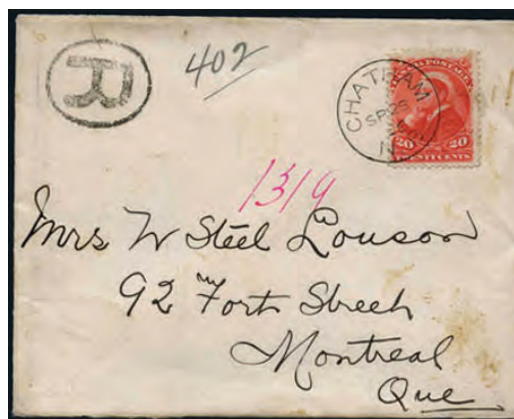 R
402
CHATHAM
SP 25
N
POSTAGE
20 20
CENTS
1319
Mrs W Steel Louson
92 Fort Street
Montreal
Que